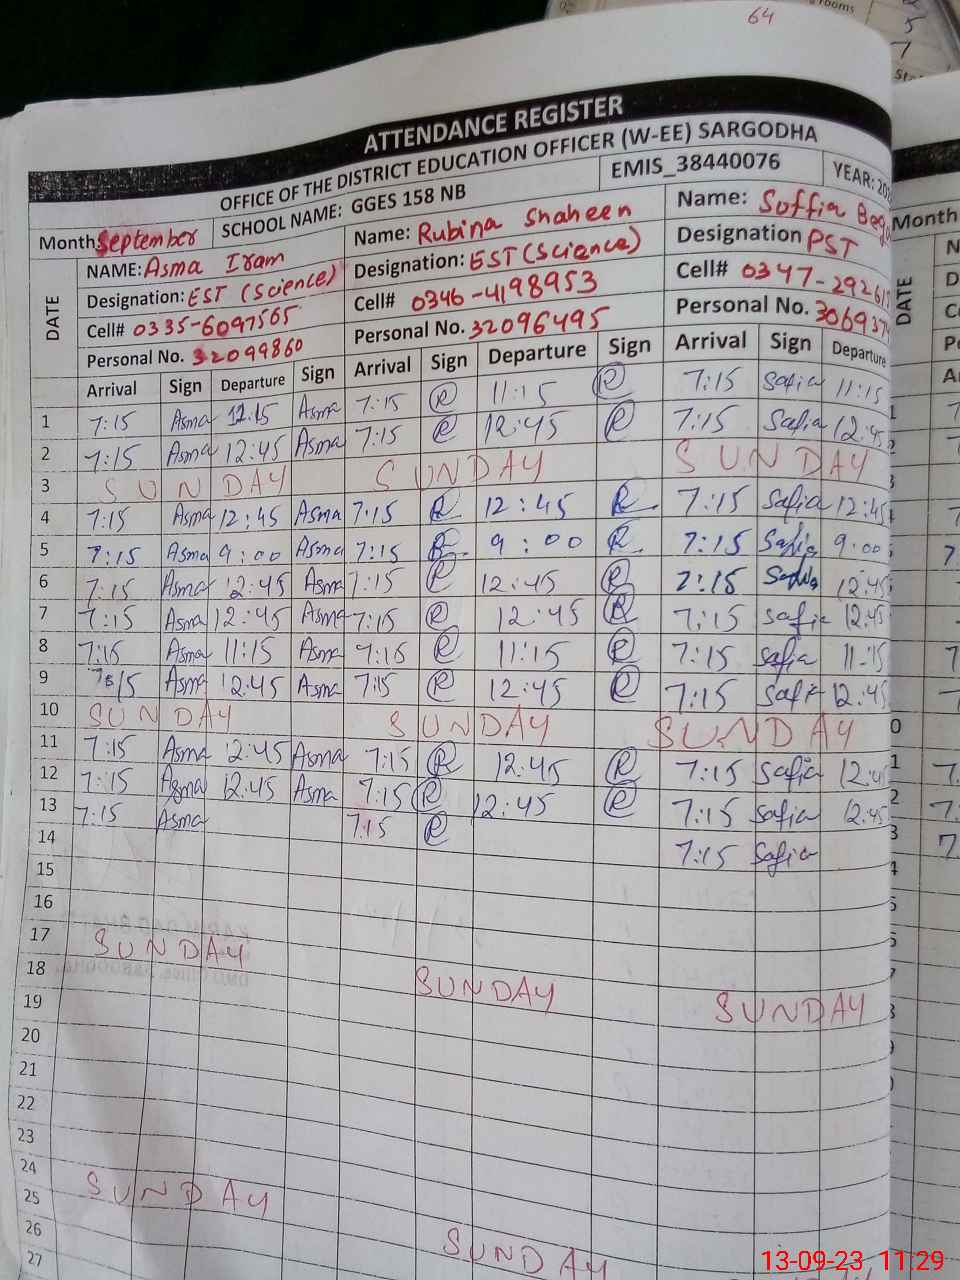 64
ATTENDANCE REGISTER
OFFICE OF THE DISTRICT EDUCATION OFFICER (W-EE) SARGODHA
Month September SCHOOL NAME: GGES 158 NB EMIS_38440076 YEAR:
DATE
NAME: Asma Iram Name: Rubina Shaheen Name: Soffia
Designation: EST (Science) Designation: EST (Science) Designation PST
Cell# 0335-6097565 Cell# 0346-4198953 Cell# 0347-
Personal No. 32099860 Personal No. 32096495 Personal No.
Arrival Sign Departure Sign Arrival Sign Departure Sign Arrival Sign Departure
1 7:15 Asma 12:15 Asma 7:15 R 11:15 R 7:15 Safia 11:15
2 7:15 Asma 12:45 Asma 7:15 R 12:45 R 7:15 Safia 12:45
3 SUNDAY SUNDAY SUNDAY
4 7:15 Asma 12:45 Asma 7:15 R 12:45 R 7:15 Safia 12:45
5 7:15 Asma 9:00 Asma 7:15 R 9:00 R 7:15 Safia 9:00
6 7:15 Asma 12:45 Asma 7:15 R 12:45 R 7:15 Safia 12:45
7 7:15 Asma 12:45 Asma 7:15 R 12:45 R 7:15 Safia 12:45
8 7:15 Asma 11:15 Asma 7:15 R 11:15 R 7:15 Safia 11:15
9 7:15 Asma 12:45 Asma 7:15 R 12:45 R 7:15 Safia 12:45
10 SUNDAY SUNDAY SUNDAY
11 7:15 Asma 12:45 Asma 7:15 R 12:45 R 7:15 Safia 12:45
12 7:15 Asma 12:45 Asma 7:15 R 12:45 R 7:15 Safia 12:45
13 7:15 Asma 7:15 R 7:15 Safia
14
15
16
17 SUNDAY SUNDAY SUNDAY
18
19
20
21
22
23
24 SUNDAY SUNDAY
25
26
27
Month
DATE
13-09-23 11:29